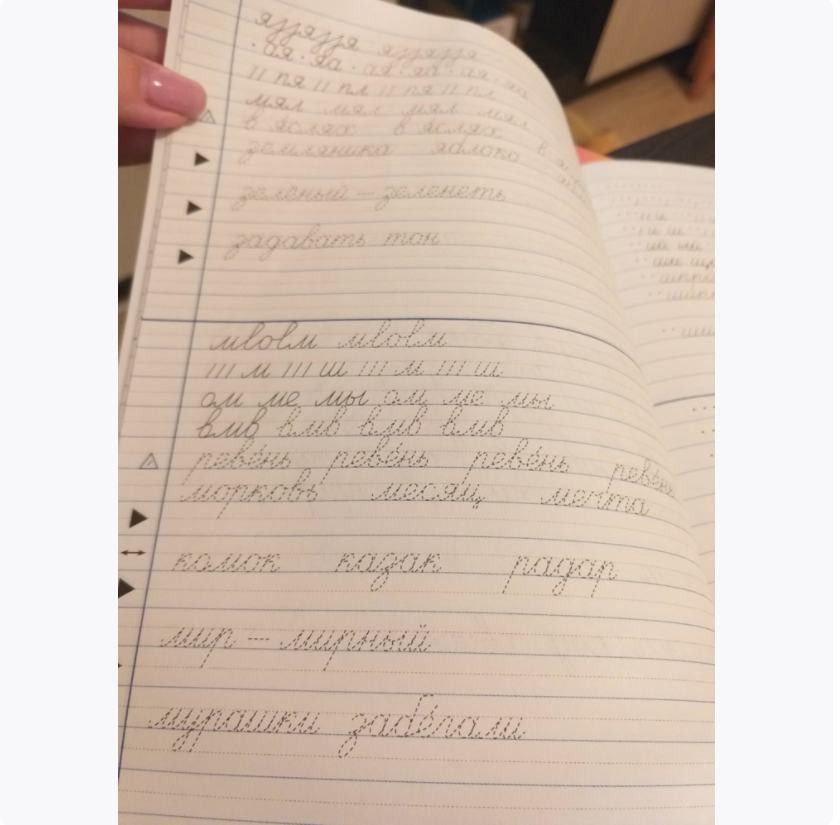 · ая · яа · ая · яа · ая · яа
// пя // пл // пя // пл
мял мял мял мял
в яслях в яслях в
земляника яблоко
зеленый — зеленеть
задавать тон
/// м /// ш /// м /// ш
ам ме мы ам ме мы
вмв вмв вмв вмв
реве́нь реве́нь реве́нь реве́нь
морковь месяц мечта
комок казак радар
мир — мирный
мурашки забе́гали